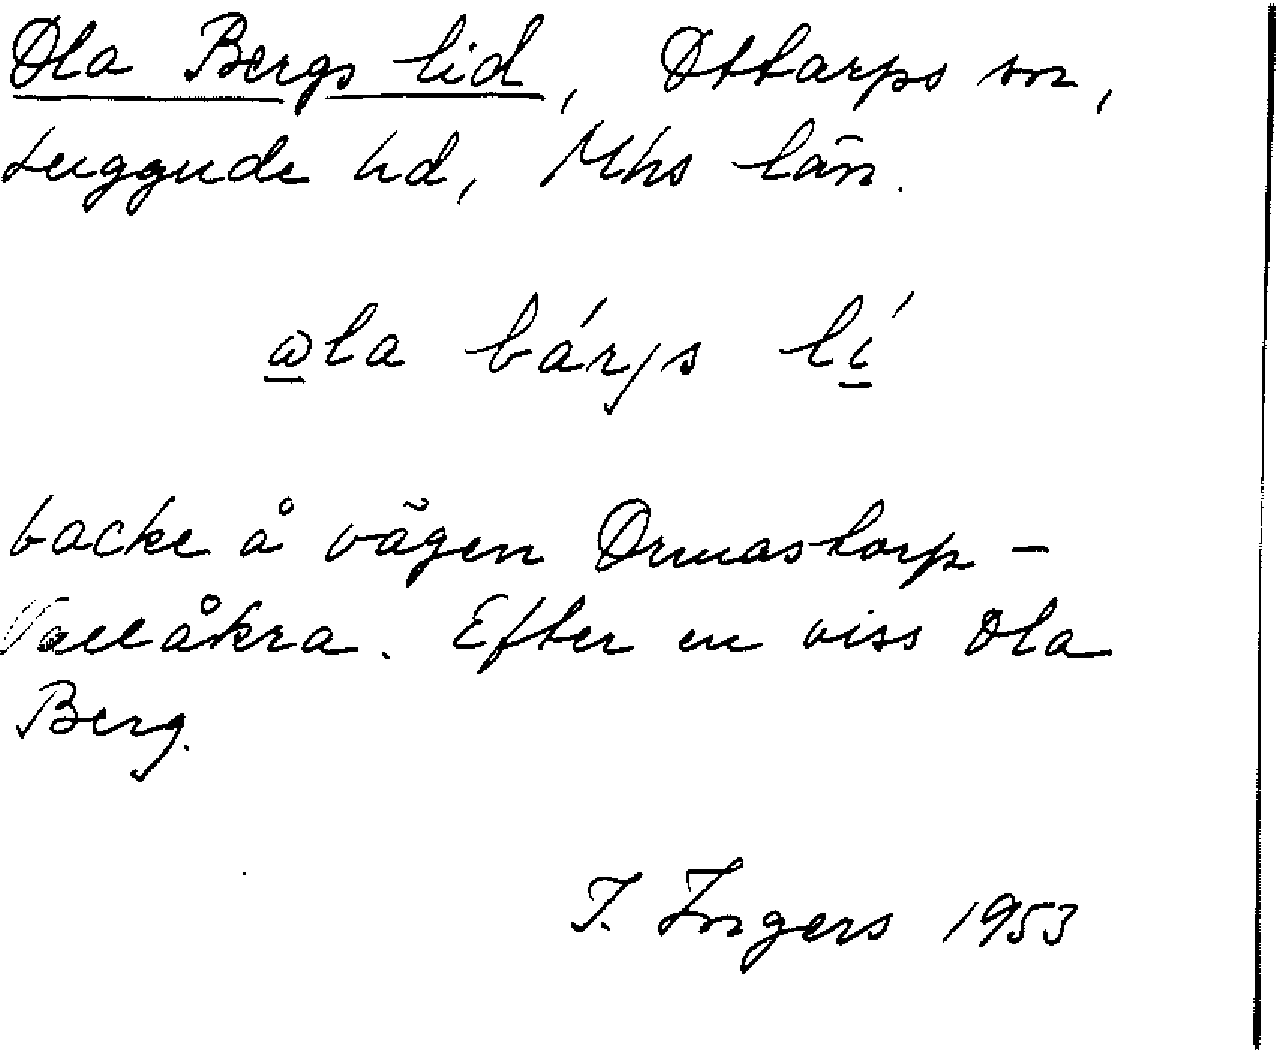 Ola Bergs lid, Ottarps sn,
Luggude hd, Mhs län.
ωla bárjs lí
backe å vägen Ormastorp -
Vallåkra. Efter en viss Ola
Berg.
I. Ingers 1953